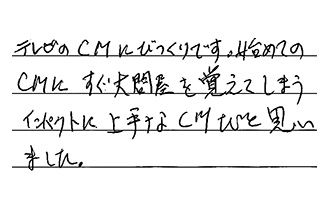 テレビのCMにびっくりです。始めての
CMに すぐ大問屋を覚えてしまう
インパクトに 上手なCMだと思い
ました。